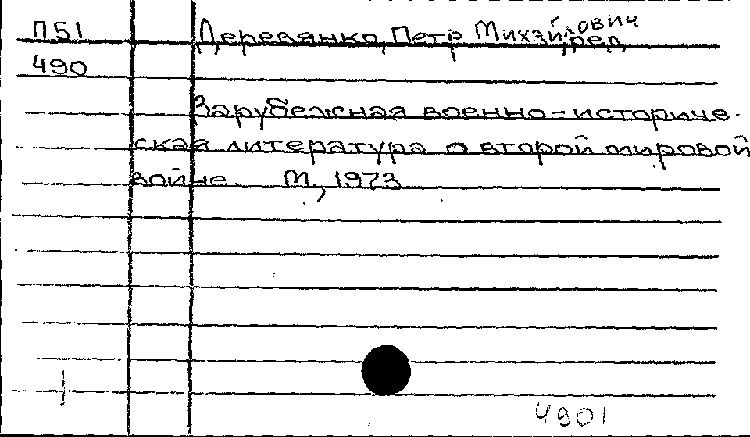 П51 Деревянко, Петр Михайлович, ред.
490
Зарубежная военно-историче-
ская литература о второй мировой
войне. М., 1973
4901